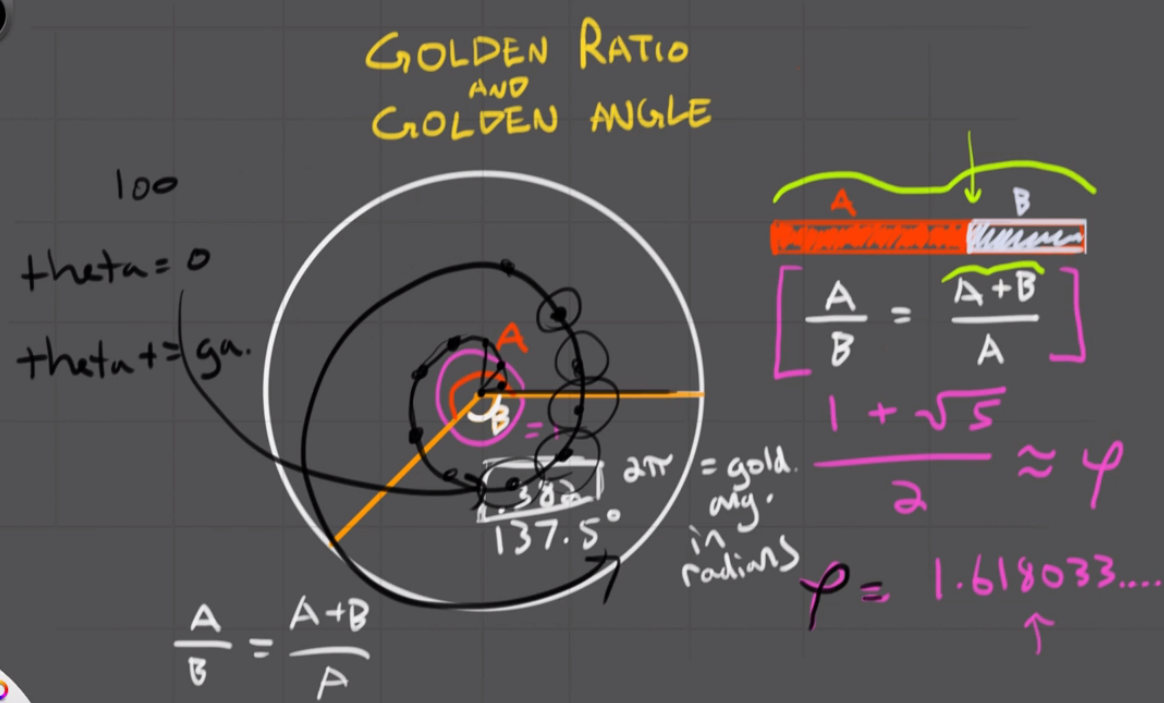 GOLDEN RATIO
AND
GOLDEN ANGLE
100
theta = 0
theta += ga.
A
B
= 1
.382
137.5°
2π = gold.
ang.
in
radians
A/B = A+B/A
A B
[A/B = A+B/A]
1 + √5/2 ≈ φ
φ = 1.618033....